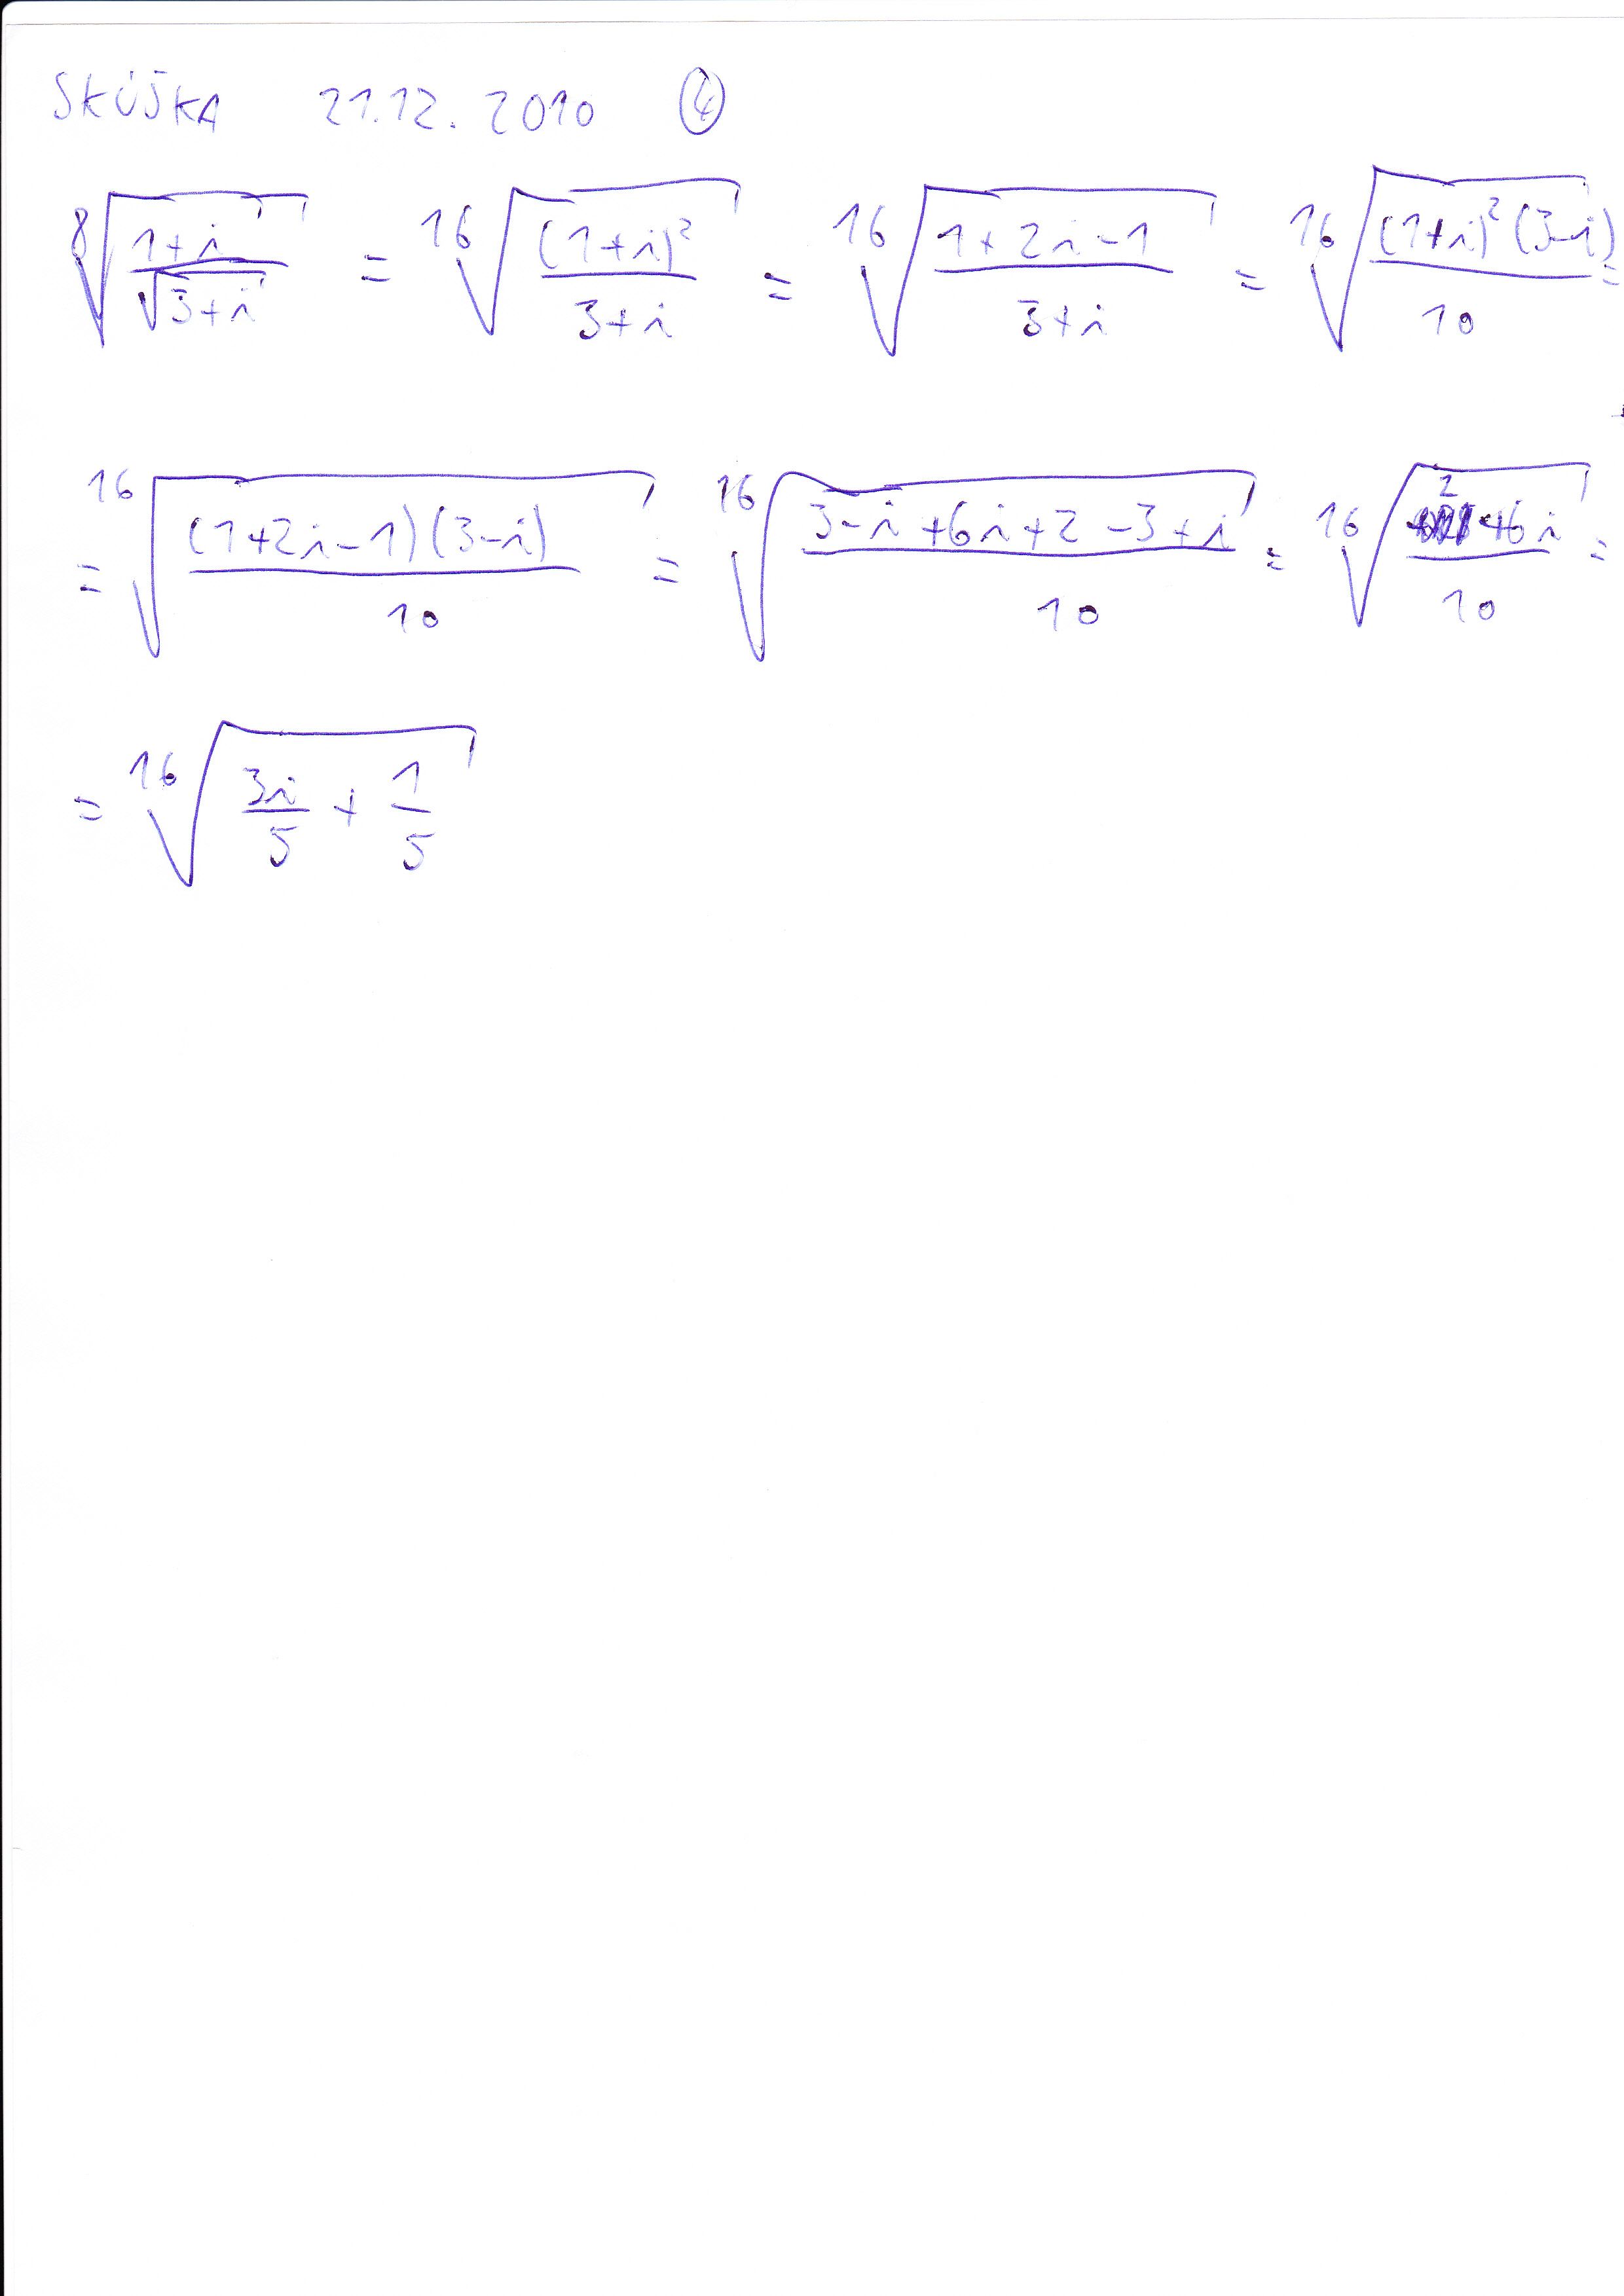 SKÚŠKA 21.12.2010 ④
$\sqrt[8]{\frac{1+i}{\sqrt{3+i}}} = \sqrt[16]{\frac{(1+i)^2}{3+i}} = \sqrt[16]{\frac{1+2i-1}{3+i}} = \sqrt[16]{\frac{(1+i)^2(3-i)}{10}} =$
$= \sqrt[16]{\frac{(1+2i-1)(3-i)}{10}} = \sqrt[16]{\frac{3-i+6i+2-3+i}{10}} = \sqrt[16]{\frac{2+6i}{10}} =$
$= \sqrt[16]{\frac{3i}{5}+\frac{1}{5}}$